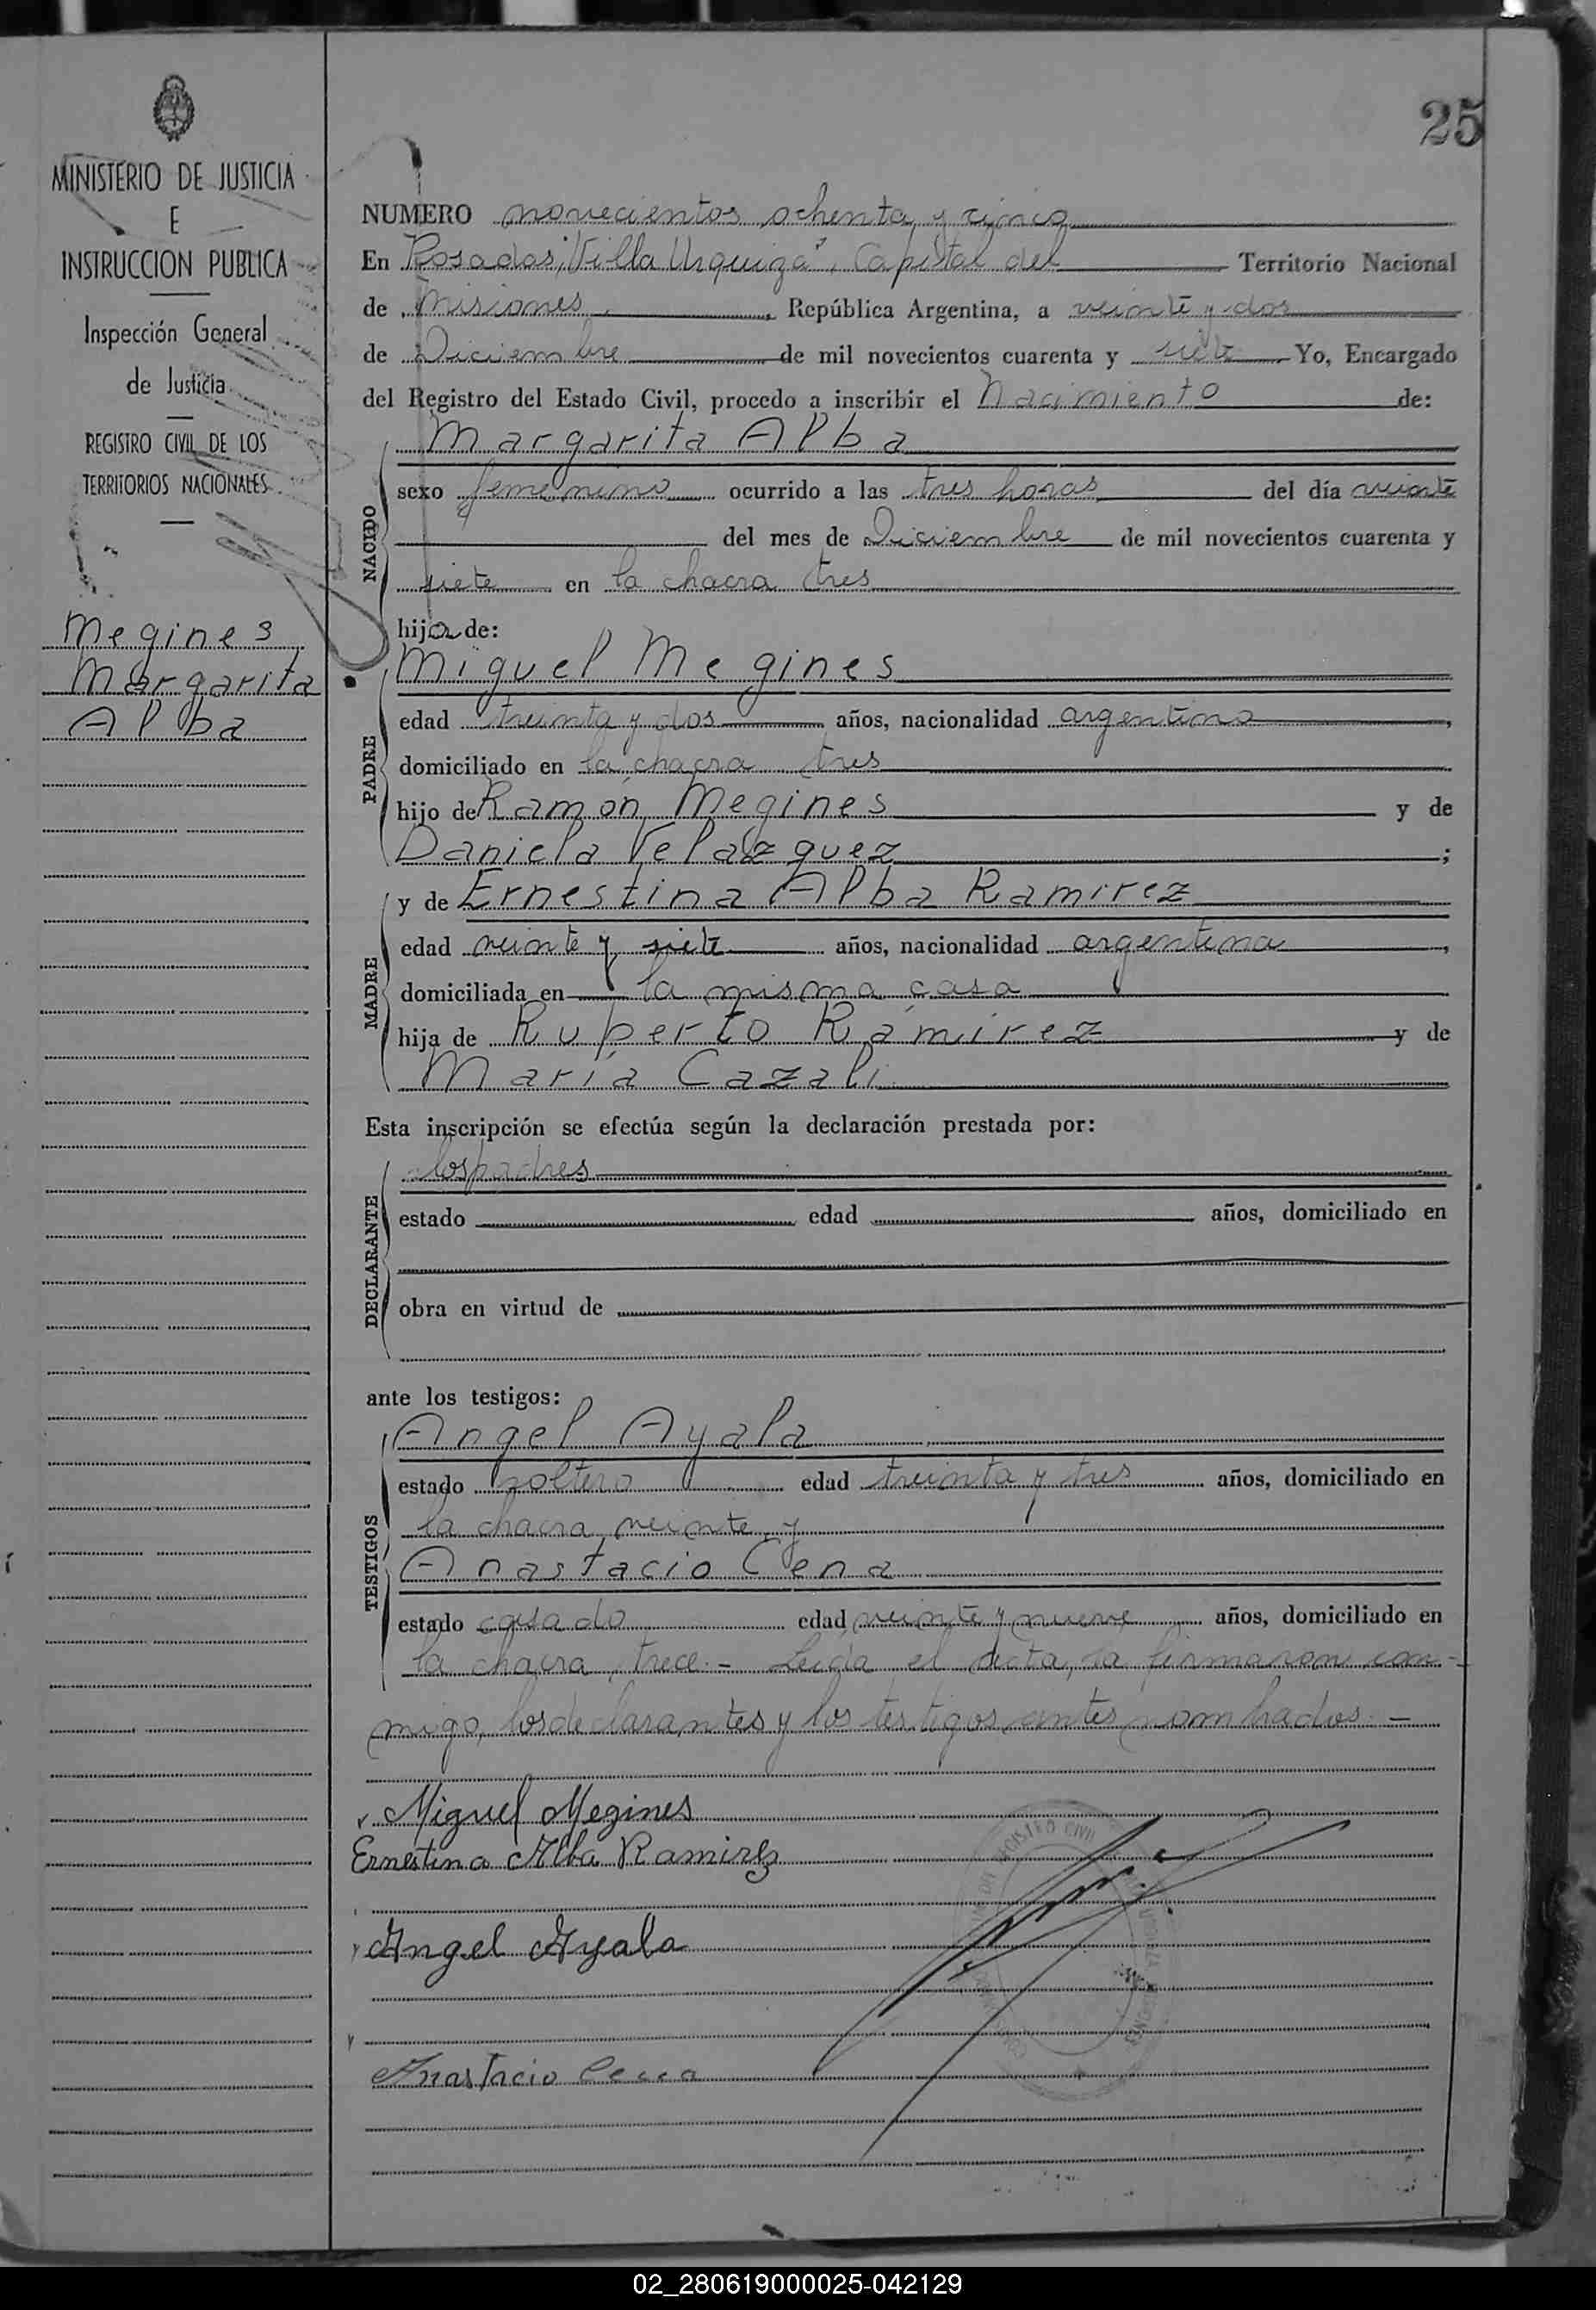 25
MINISTERIO DE JUSTICIA
E
INSTRUCCION PUBLICA
Inspección General
de Justicia
REGISTRO CIVIL DE LOS
TERRITORIOS NACIONALES
Megines
Margarita
Alba
NUMERO novecientos ochenta y cinco
En Posadas, "Villa Urquiza", Capital del Territorio Nacional
de Misiones, República Argentina, a veinte y dos
de Diciembre de mil novecientos cuarenta y siete Yo, Encargado
del Registro del Estado Civil, procedo a inscribir el Nacimiento de:
NACIDO
Margarita Alba
sexo femenino ocurrido a las tres horas del día veinte
del mes de Diciembre de mil novecientos cuarenta y
siete en la chacra tres
hija de:
PADRE
Miguel Megines
edad treinta y dos años, nacionalidad argentino,
domiciliado en la chacra tres
hijo de Ramón Megines y de
Daniela Velazquez;
MADRE
y de Ernestina Alba Ramirez
edad veinte y siete años, nacionalidad argentina,
domiciliada en la misma casa
hija de Ruperto Ramírez y de
María Cazali
Esta inscripción se efectúa según la declaración prestada por:
DECLARANTE
los padres
estado edad años, domiciliado en
obra en virtud de
ante los testigos:
TESTIGOS
Angel Ayala
estado soltero edad treinta y tres años, domiciliado en
la chacra veinte y
Anastacio Cena
estado casado edad veinte y nueve años, domiciliado en
la chacra trece.- Leída el acta, la firmaron con-
migo, los declarantes y los testigos antes nombrados.-
Miguel Megines
Ernestina Alba Ramirez
Angel Ayala
Anastacio Cena
REGISTRO CIVIL
02_280619000025-042129